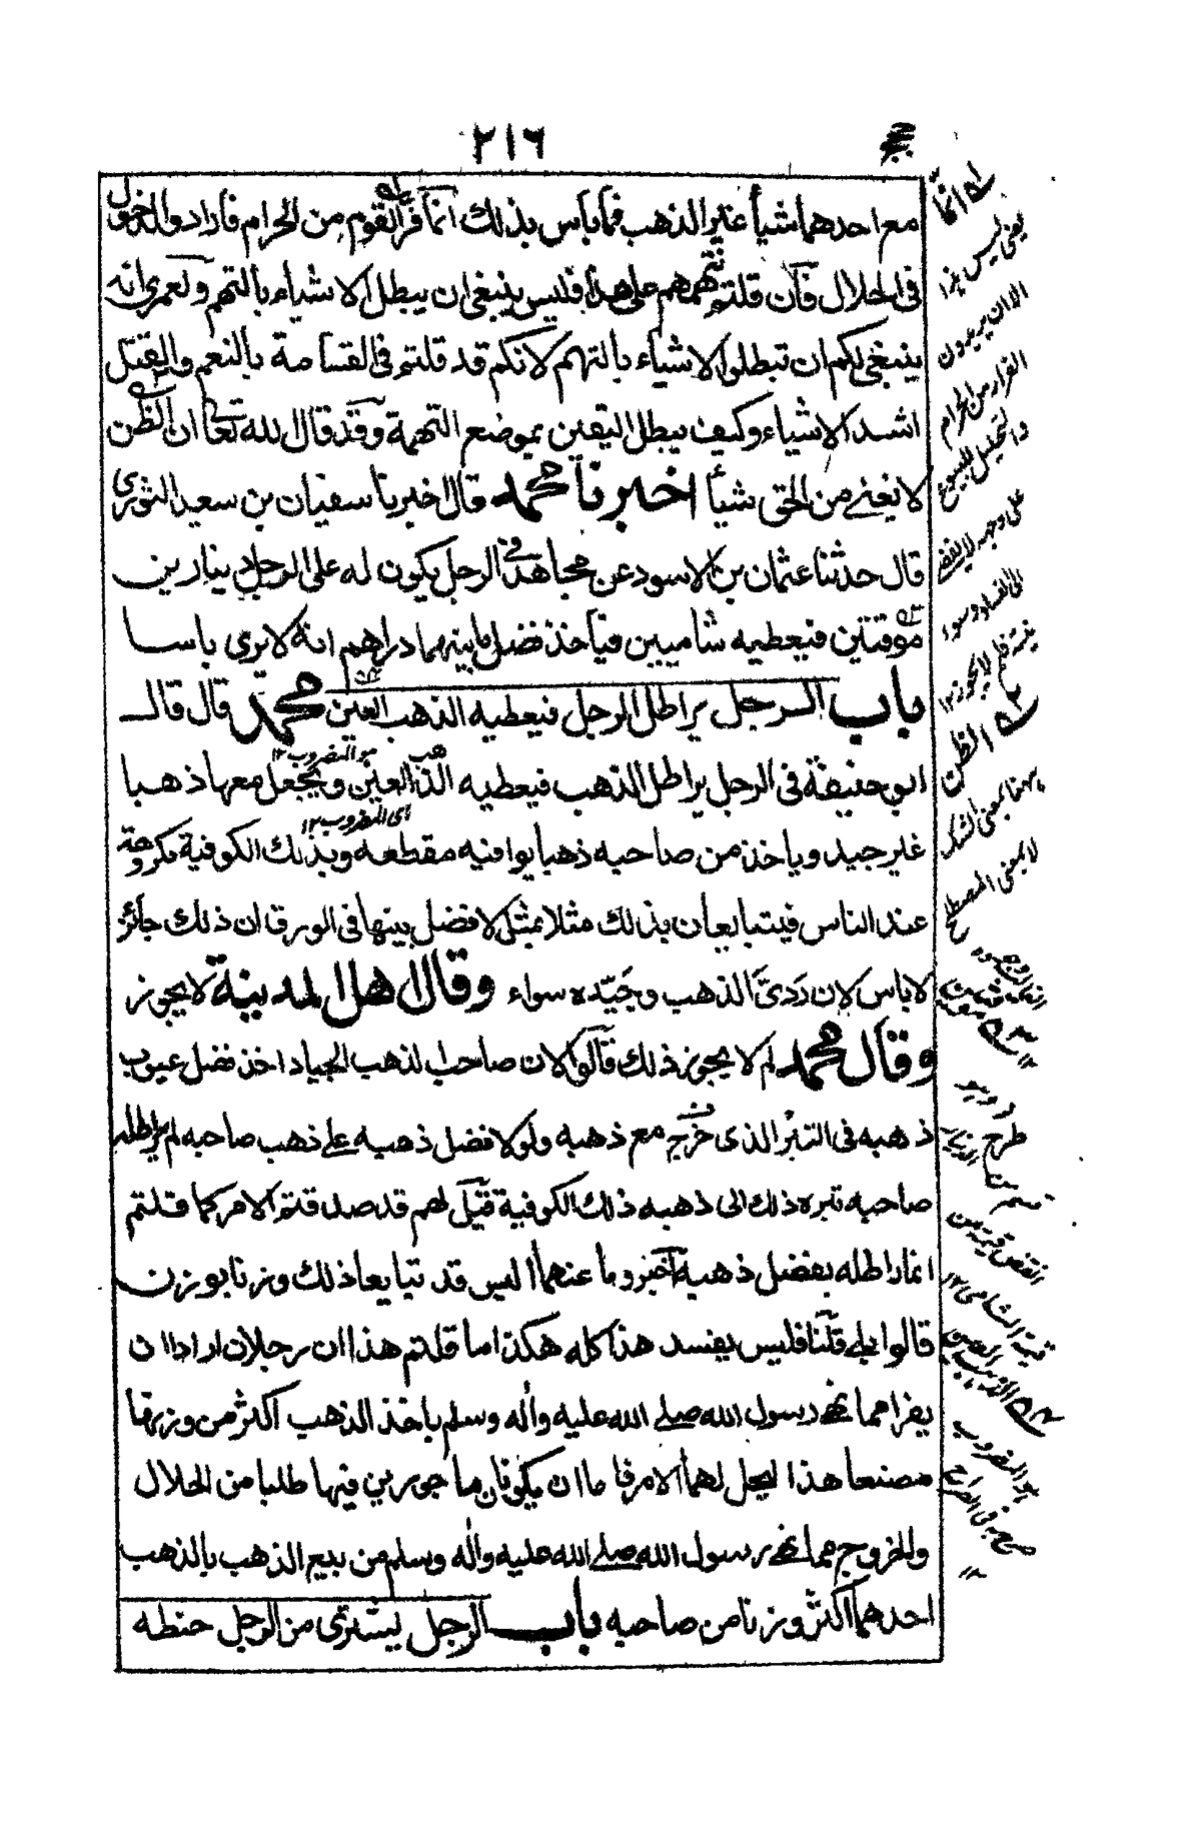 ٢١٦
مع احدهما شيأ غير الذهب فما باس بذلك انما فر القوم من الحرام فارادوا الدخول
فى الحلال فان قلتم نتهمهم على هذا فليس ينبغى ان يبطل الاشياء بالتهم ولعمرى انه
ينبغى لكم ان تبطلوا الاشياء بالتهم لانكم قد قلتم فى القسامة بالتهم والقتل
اشد الاشياء وكيف يبطل اليقين بموضع التهمة وقد قال لله تعا ان الظن
لا يغنى من الحق شيأ اخبرنا محمد قال اخبرنا سفيان بن سعيد الثورى
قال حدثنا عثمان بن الاسود عن مجاهد فى الرجل يكون له على الرجل دينارين
موقتتين فيعطيه شاميين فياخذ فضل ما بينهما دراهم انه لا يرى باسا
باب الرجل يراطل الرجل فيعطيه الذهب العين محمد قال قال
ابو حنيفة فى الرجل يراطل الذهب فيعطيه الذهب العين ويجعل معها ذهبا
هو المضروب ١٢
غير جيد وياخذ من صاحبه ذهبا يوافيه مقطعه وبذلك الكوفية مكروهة
اى المضروب ١٢
عند الناس فيتبايعان بذلك مثلا بمثل لا فضل بينها فى الورق ان ذلك جائز
لا باس لان رَدىَّ الذهب وجَيّده سواء وقال اهل المدينة لا يجوز
وقال محمد لم لا يجوز ذلك قالوا لان صاحب الذهب الجياد اخذ فضل عيوب
ذهبه فى التبر الذى خرج مع ذهبه ولولا فضل ذهبه على ذهب صاحبه لم يراطله
صاحبه تبره ذلك الى ذهبه ذلك الكوفية قيل لهم قد صدقتم الامر كما قلتم
انما راطله بفضل ذهبه اخير وما عنهما اليس قد تبايعا ذلك وزنا بوزن
قالوا بلى قلنا فليس يفسد هذا كله هكذا ما قلتم هذا ان رجلان ارادا ان
يفرا مما نهى رسول الله صلى الله عليه واله وسلم باخذ الذهب اكثر من وزنها
مصنعا هذا ليحل لهما الامر فاما ان يكونان ماجورين فيها طلبا من الحلال
وللخروج مما نهى رسول الله صلى الله عليه واله وسلم من بيع الذهب بالذهب
احدهما اكثر وزنا من صاحبه باب الرجل يشترى من الرجل حنطه
انما
يعنى ليس هذا
الا ان يريدون
الفرار من الحرام
والتحيل للبيوع
على وجه لا يفضى
الظن
ههنا بمعنى الشك
لا بمعنى المصطلح